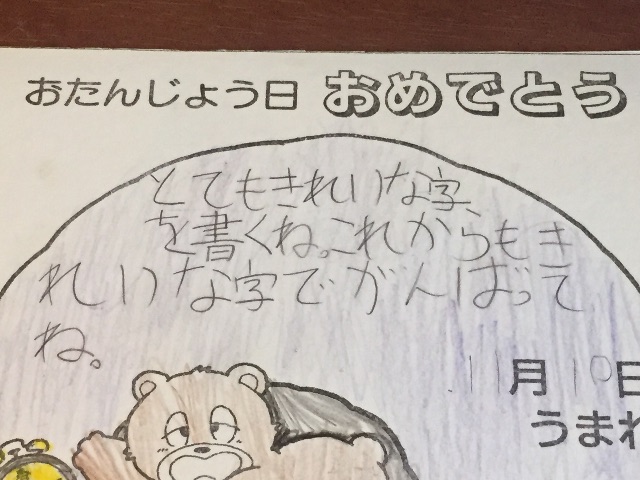 おたんじょう日 おめでとう
とてもきれいな字
を書くね。これからもき
れいな字でがんばって
ね。
11月10日
うまれ